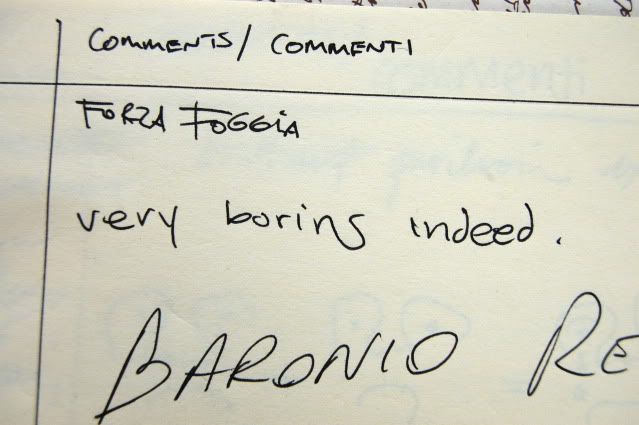 COMMENTS / COMMENTI
FORZA FOGGIA
very boring indeed.
BARONIO RE